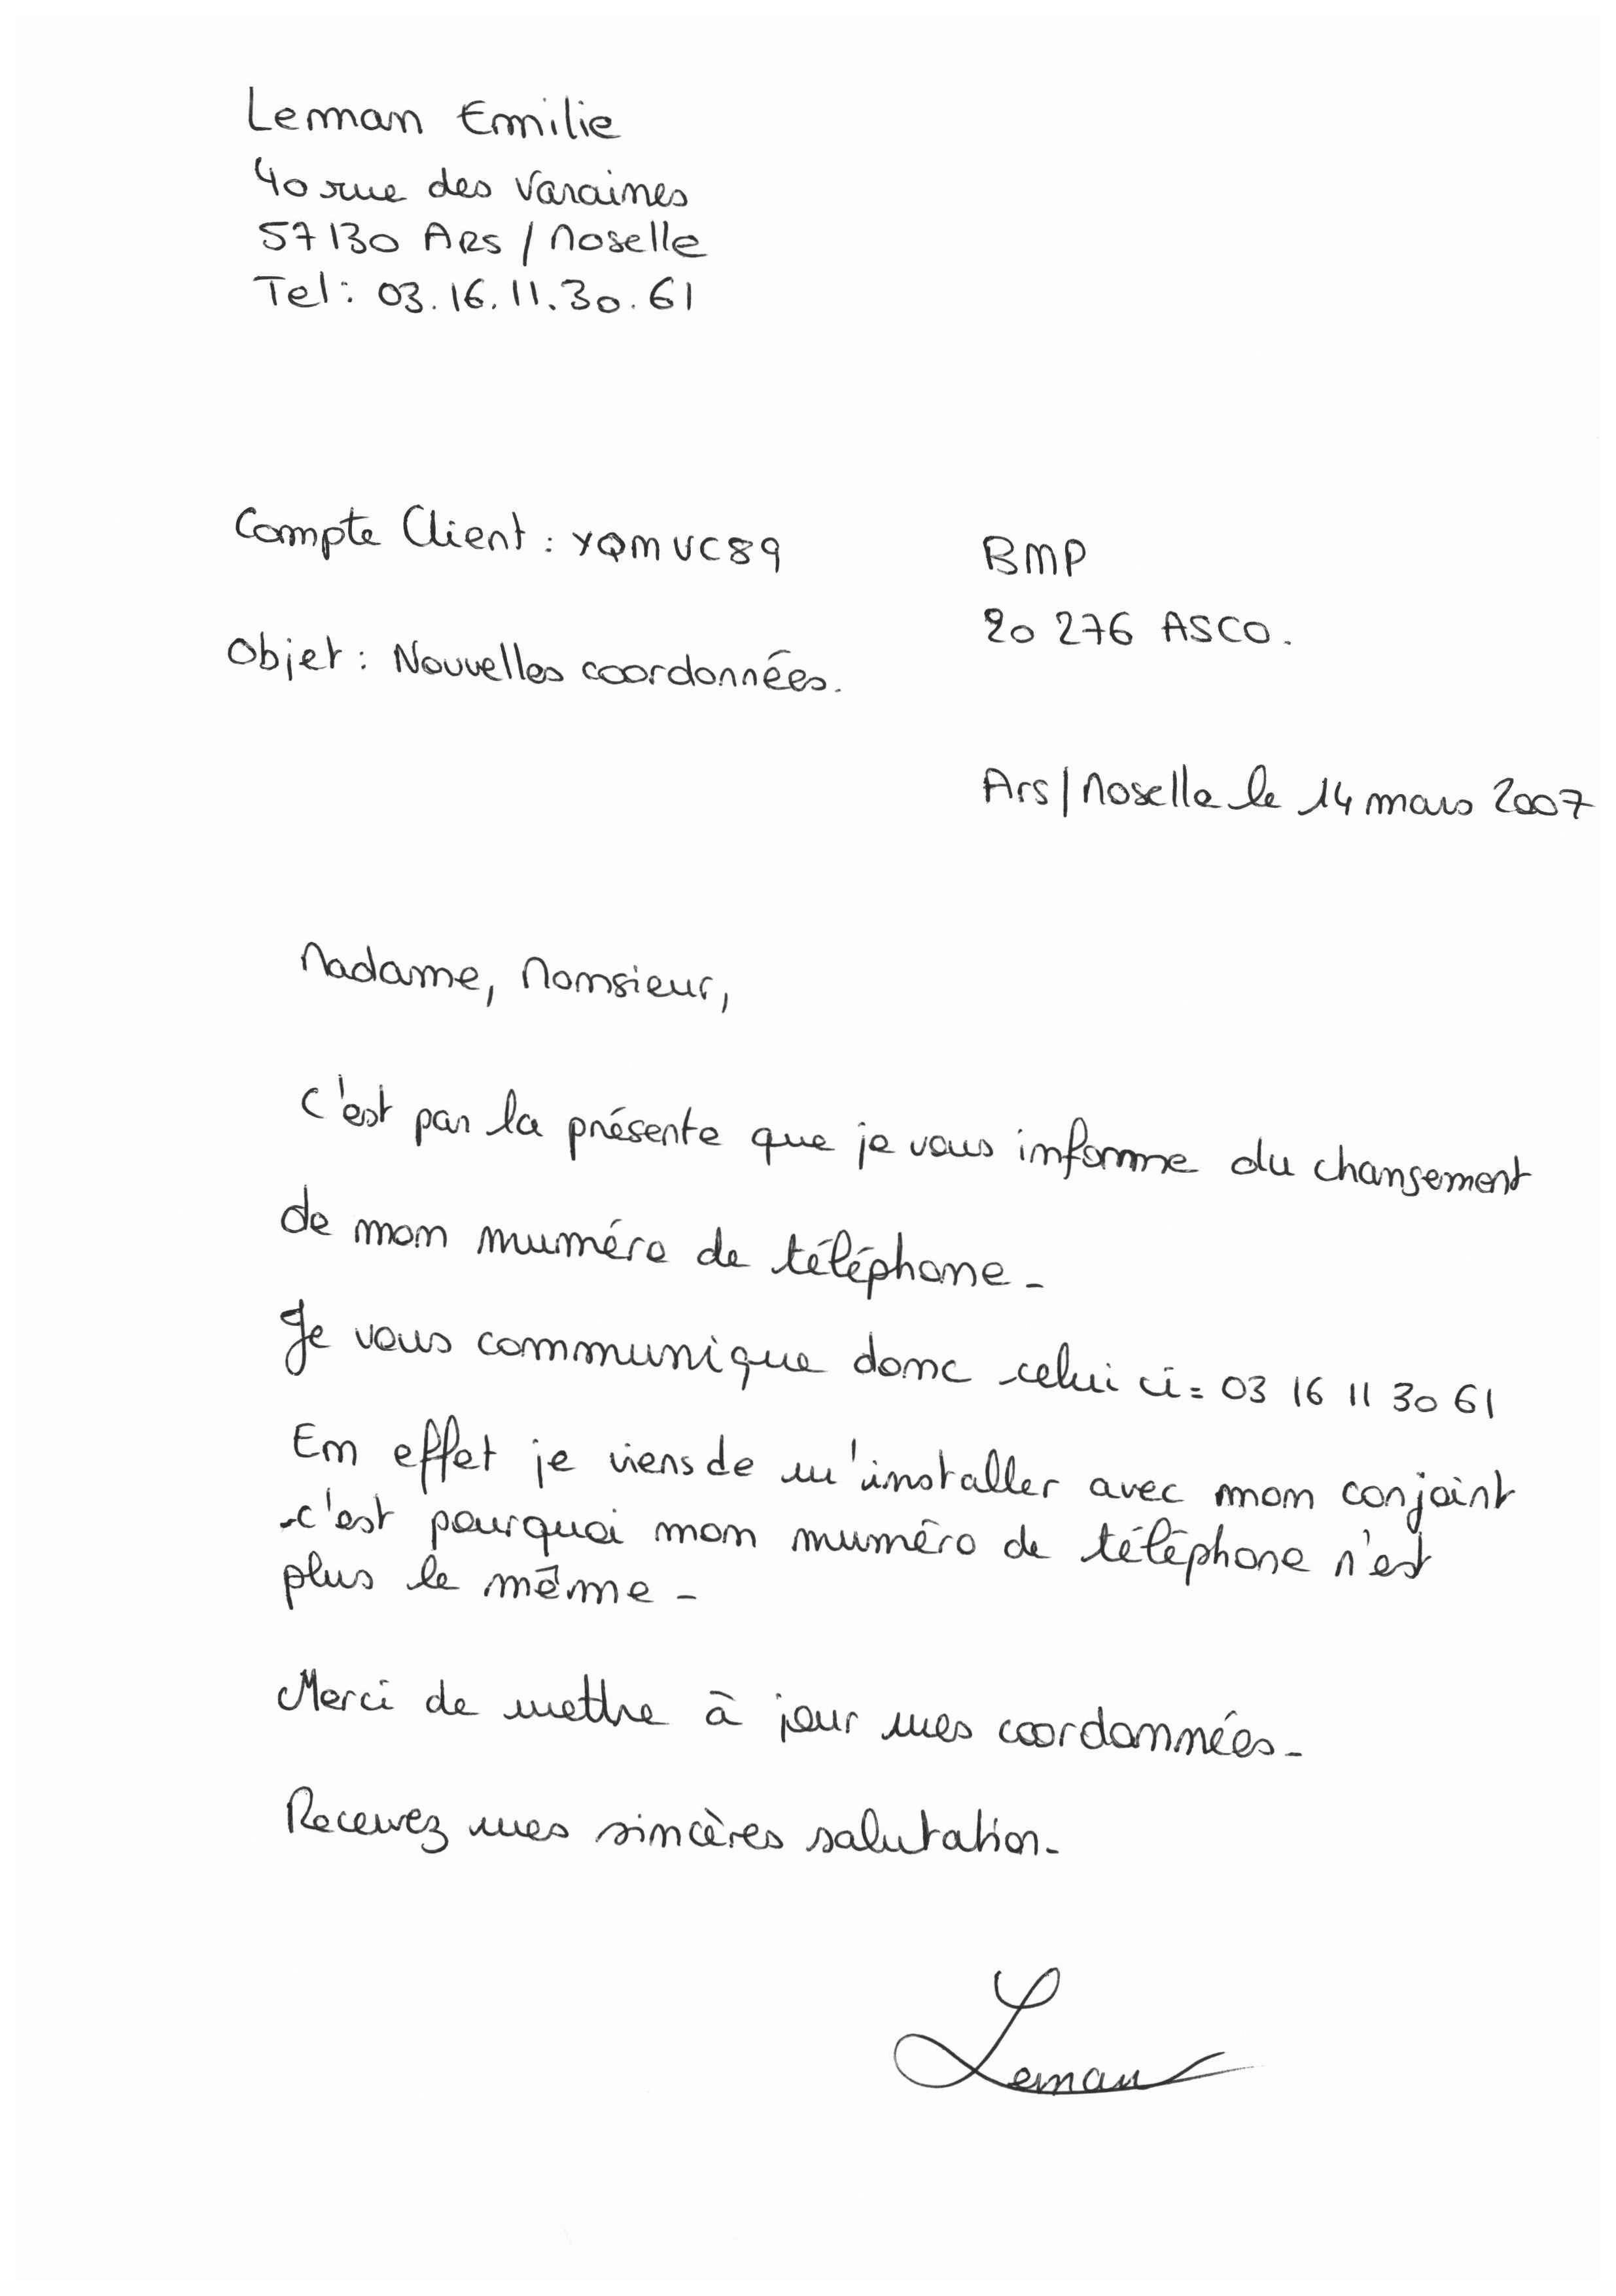 Leman Emilie
40 rue des Varaines
57130 ARS / Moselle
Tel : 03.16.11.30.61
Compte Client : YQMVC89
BMP
20 276 ASCO.
Objet : Nouvelles coordonnées.
Ars / Moselle le 14 mars 2007
Madame, Monsieur,
C'est par la présente que je vous informe du changement
de mon numéro de téléphone -
Je vous communique donc celui ci = 03 16 11 30 61
En effet je viens de m'installer avec mon conjoint
c'est pourquoi mon numéro de téléphone n'est
plus le même -
Merci de mettre à jour mes coordonnées -
Recevez mes sincères salutation -
Leman